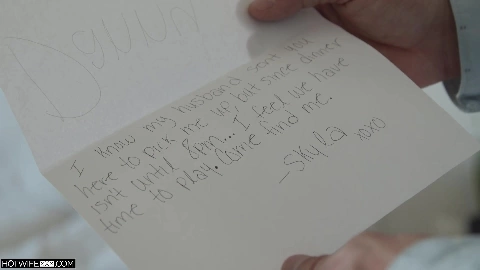 Danny
I know my husband sent you
here to pick me up, but since dinner
isn't until 8pm... I feel we have
time to play. Come find me.
-Skylar
xoxo
HOTWIFEXXX.COM